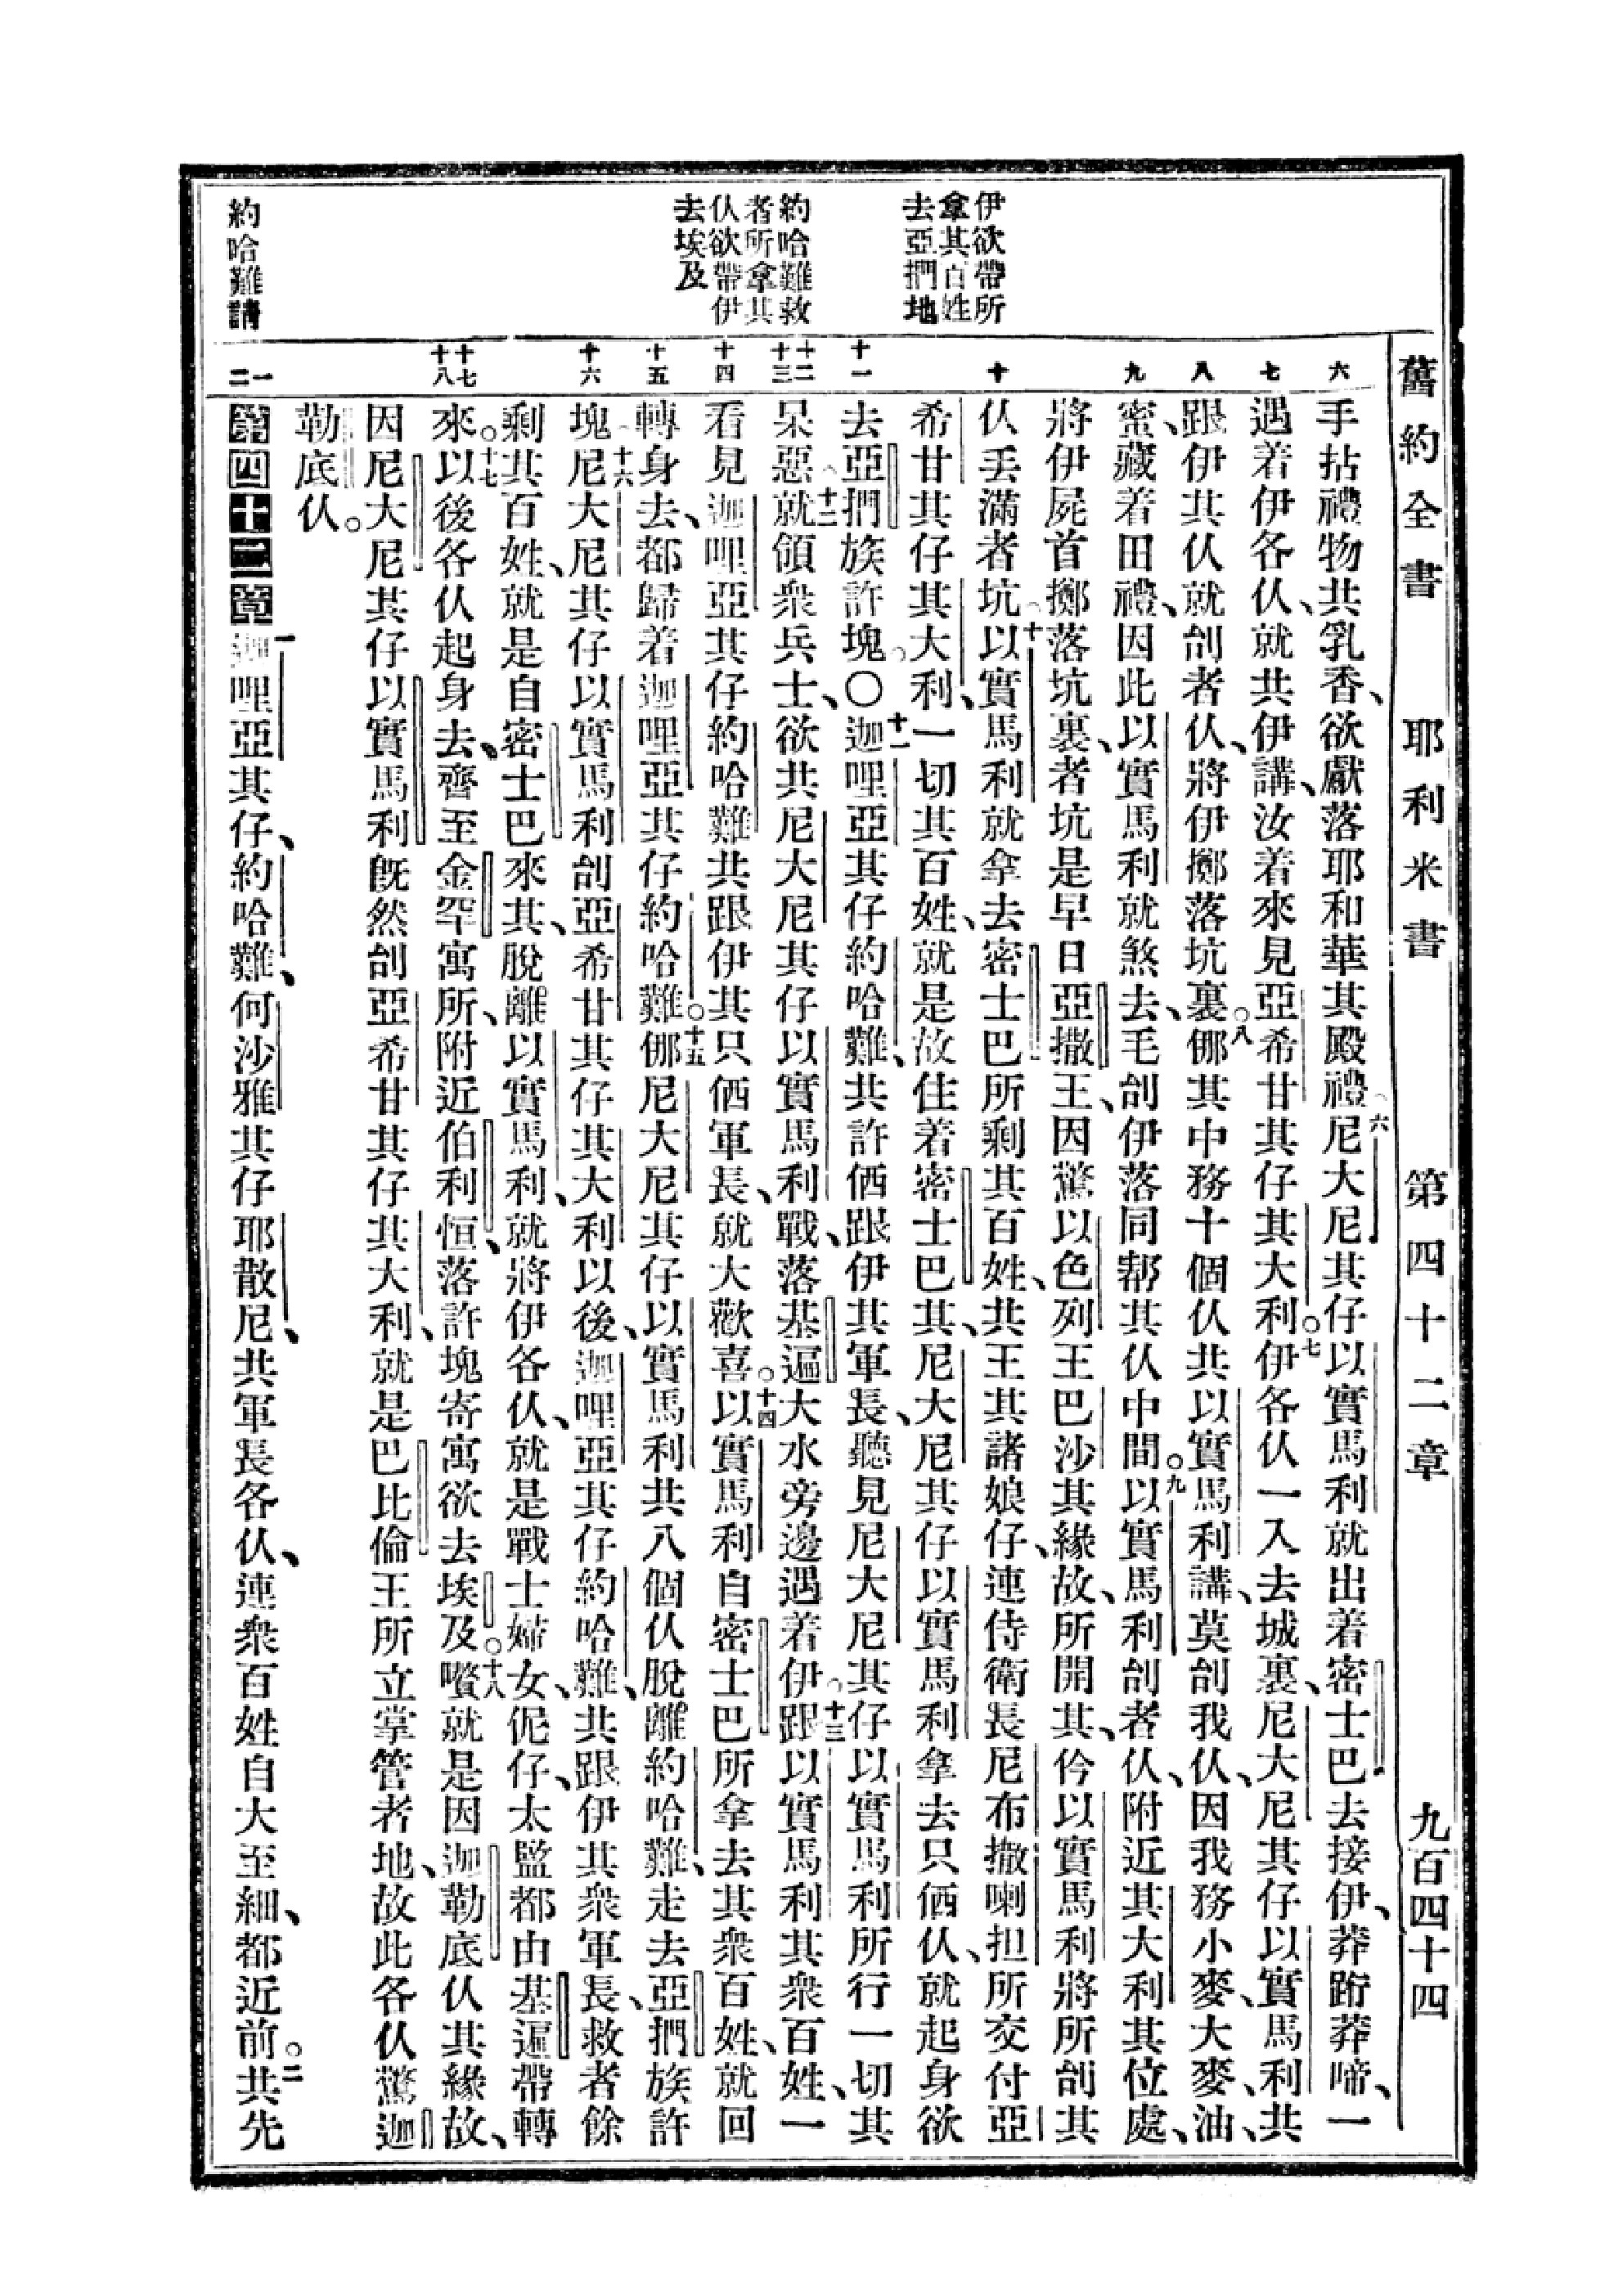 舊約全書 耶利米書 第四十二章 九百四十四
伊欲帶所
拿其百姓
去亞捫地
約哈難救
者所拿其
仈欲帶伊
去埃及
約哈難請
六 七 八 九 十 十一 十二 十三 十四 十五 十六 十七 十八 一 二
手拈禮物共乳香、欲獻落耶和華其殿禮。六尼大尼其仔以實馬利就出着密士巴去接伊、莽跨莽啼、一
遇着伊各仈、就共伊講、汝着來見亞希甘其仔其大利。七伊各仈一入去城裏、尼大尼其仔以實馬利共
跟伊其仈就刣者仈、將伊擲落坑裏。八㑚其中務十個仈共以實馬利講、莫刣我仈、因我務小麥、大麥、油、
蜜、藏着田禮、因此以實馬利就煞去、毛刣伊落同帮其仈中間。九以實馬利刣者仈、附近其大利其位處、
將伊屍首擲落坑裏、者坑是早日亞撒王、因驚以色列王巴沙其緣故、所開其、伶以實馬利將所刣其
仈丟滿者坑。十以實馬利就拿去密士巴所剩其百姓、共王其諸娘仔、連侍衛長尼布撒喇担所交付亞
希甘其仔其大利、一切其百姓、就是故住着密士巴其、尼大尼其仔以實馬利拿去只仈、就起身欲
去亞捫族許塊。〇十一迦哩亞其仔約哈難、共許跟伊其軍長、聽見尼大尼其仔以實馬利所行一切其
呆惡。十二就領衆兵士、欲共尼大尼其仔以實馬利戰、落基遍大水旁邊遇着伊。十三跟以實馬利其衆百姓、一
看見迦哩亞其仔約哈難共跟伊其只軍長、就大歡喜。十四以實馬利自密士巴所拿去其衆百姓、就回
轉身去、都歸着迦哩亞其仔約哈難。十五㑚尼大尼其仔以實馬利共八個仈脫離約哈難、走去亞捫族許
塊。十六尼大尼其仔以實馬利刣亞希甘其仔其大利以後、迦哩亞其仔約哈難、共跟伊其衆軍長、救者餘
剩其百姓、就是自密士巴來其、脫離以實馬利、就將伊各仈、就是戰士婦女、伲仔、太監都由基遍帶轉
來。十七以後各仈起身去、齊至金罕寓所、附近伯利恒、落許塊寄寓欲去埃及。十八嚽就是因迦勒底仈其緣故、
因尼大尼其仔以實馬利旣然刣亞希甘其仔其大利、就是巴比倫王所立掌管者地、故此各仈驚迦
勒底仈。
第四十二章 一迦哩亞其仔、約哈難、何沙雅其仔耶散尼、共軍長各仈、連衆百姓自大至細、都近前。二共先